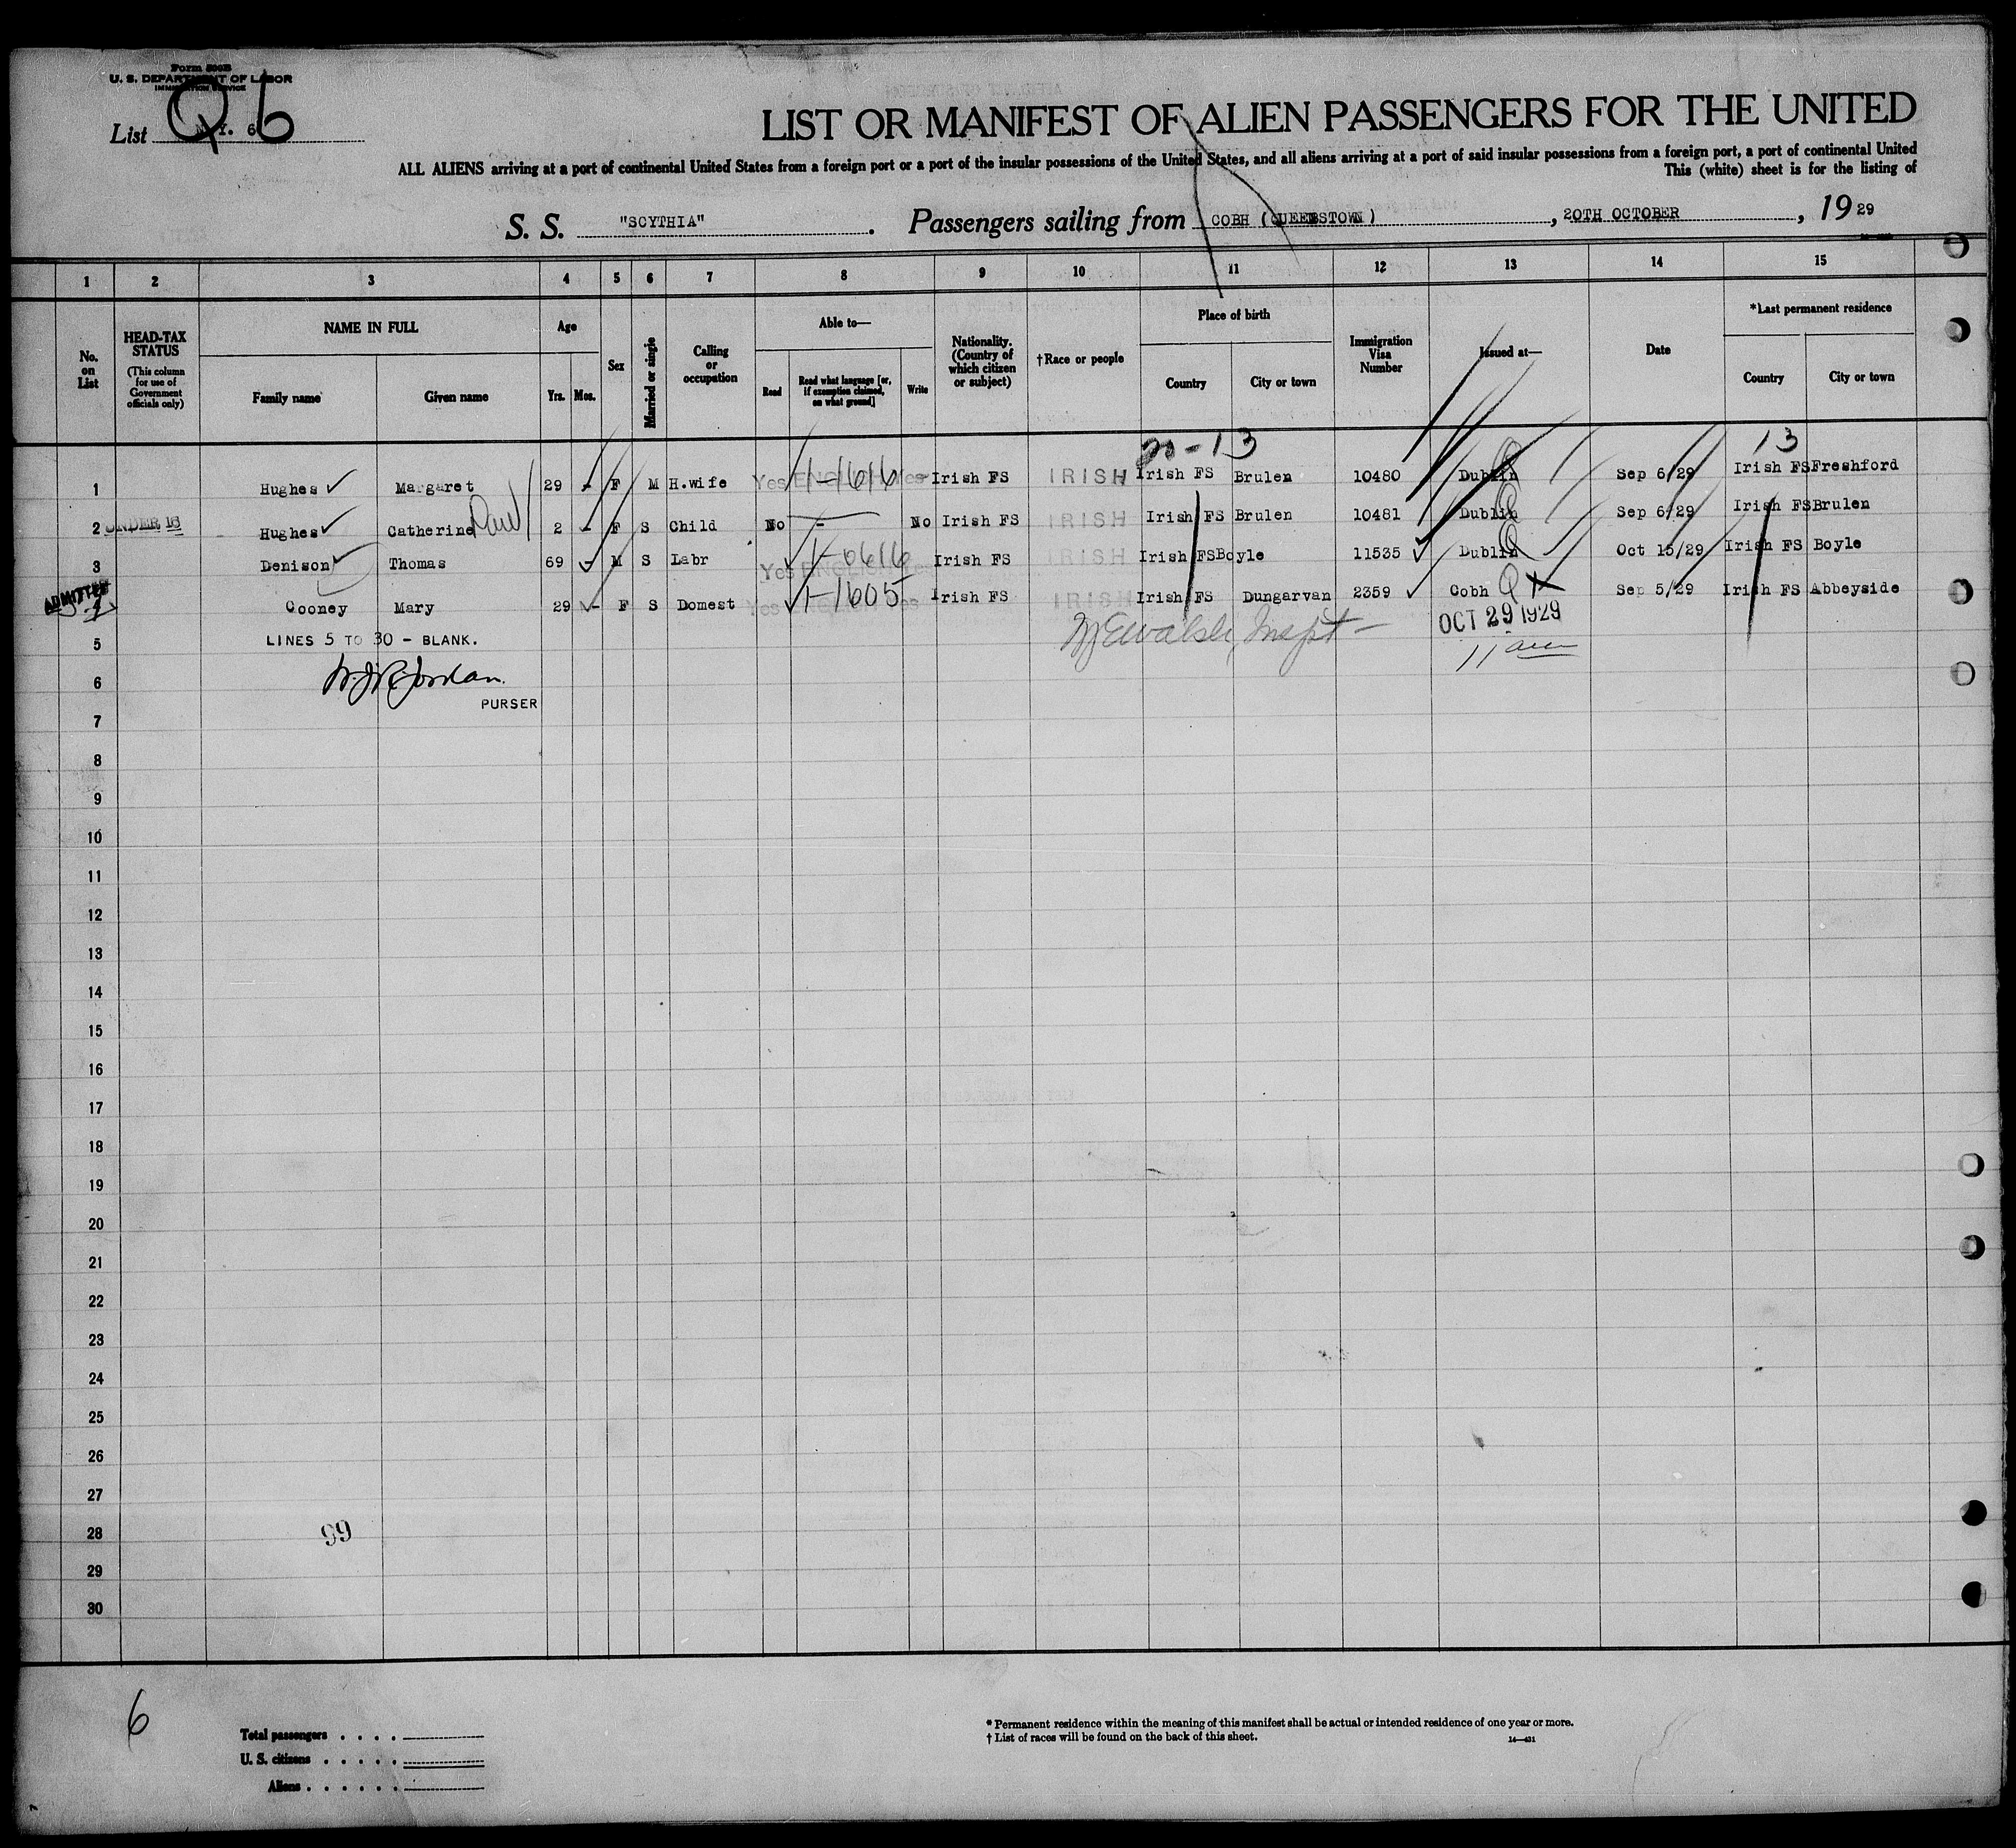 Form 500B
U. S. DEPARTMENT OF LABOR
IMMIGRATION SERVICE
List N.Y. 6 Q 6
LIST OR MANIFEST OF ALIEN PASSENGERS FOR THE UNITED
ALL ALIENS arriving at a port of continental United States from a foreign port or a port of the insular possessions of the United States, and all aliens arriving at a port of said insular possessions from a foreign port, a port of continental United
This (white) sheet is for the listing of
S. S. "SCYTHIA". Passengers sailing from COBH (QUEENSTOWN), 20TH OCTOBER, 1929
1 2 3 4 5 6 7 8 9 10 11 12 13 14 15
No. on List
HEAD-TAX STATUS
(This column for use of Government officials only)
NAME IN FULL
Family name Given name
Age
Yrs. Mos.
Sex
Married or single
Calling or occupation
Able to—
Read
Read what language [or, if exemption claimed, on what ground]
Write
Nationality. (Country of which citizen or subject)
†Race or people
Place of birth
Country City or town
Immigration Visa Number
Issued at—
Date
*Last permanent residence
Country City or town
20-13 13
1 Hughes Margaret 29 - F M H.wife Yes ENGLISH Yes 1-1616 Irish FS IRISH Irish FS Brulen 10480 Dublin Q Sep 6/29 Irish FS Freshford
2 UNDER 16 Hughes Catherine 2 - F S Child No - No Irish FS IRISH Irish FS Brulen 10481 Dublin Q Sep 6/29 Irish FS Brulen
3 Denison Thomas 69 - M S Labr Yes ENGLISH Yes 1-0616 Irish FS IRISH Irish FS Boyle 11535 Dublin Q Oct 15/29 Irish FS Boyle
ADMITTED
4 Cooney Mary 29 - F S Domest Yes ENGLISH Yes 1-1605 Irish FS IRISH Irish FS Dungarvan 2359 Cobh Q Sep 5/29 Irish FS Abbeyside
5 LINES 5 TO 30 - BLANK. Walsh, Inspt - OCT 29 1929
11 am
6 Jordan
PURSER
7
8
9
10
11
12
13
14
15
16
17
18
19
20
21
22
23
24
25
26
27
28 99
29
30
6
Total passengers . . . .
U. S. citizens . . . . .
Aliens . . . . . .
* Permanent residence within the meaning of this manifest shall be actual or intended residence of one year or more.
† List of races will be found on the back of this sheet.
14—431